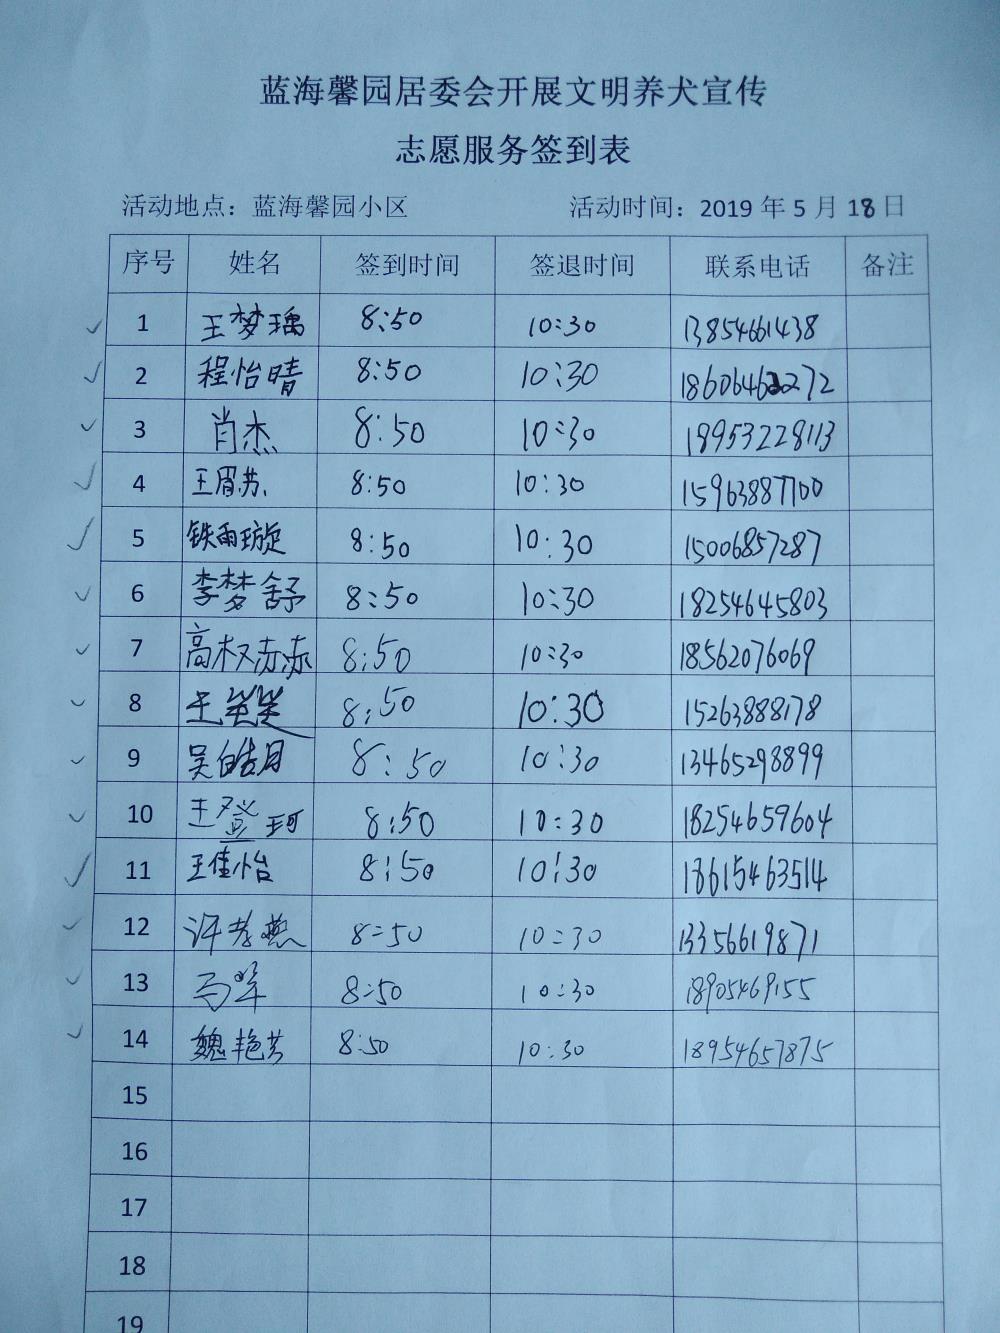 蓝海馨园居委会开展文明养犬宣传
志愿服务签到表
活动地点：蓝海馨园小区 活动时间：2019 年 5 月 18 日
序号 姓名 签到时间 签退时间 联系电话 备注
1 王梦瑀 8:50 10:30 13854661438
2 程怡晴 8:50 10:30 18606462272
3 肖杰 8:50 10:30 18953228113
4 王胥苏 8:50 10:30 15963887100
5 铁雨璇 8:50 10:30 15006857287
6 李梦舒 8:50 10:30 18254645803
7 高权赤赤 8:50 10:30 18562076069
8 王 8:50 10:30 15263888178
9 吴皓月 8:50 10:30 13465298899
10 王登珂 8:50 10:30 18254659604
11 王佳怡 8:50 10:30 18615463514
12 许孝燕 8:50 10:30 13356619871
13 马军 8:50 10:30 18905469155
14 魏艳芳 8:50 10:30 18954657875
15
16
17
18
19